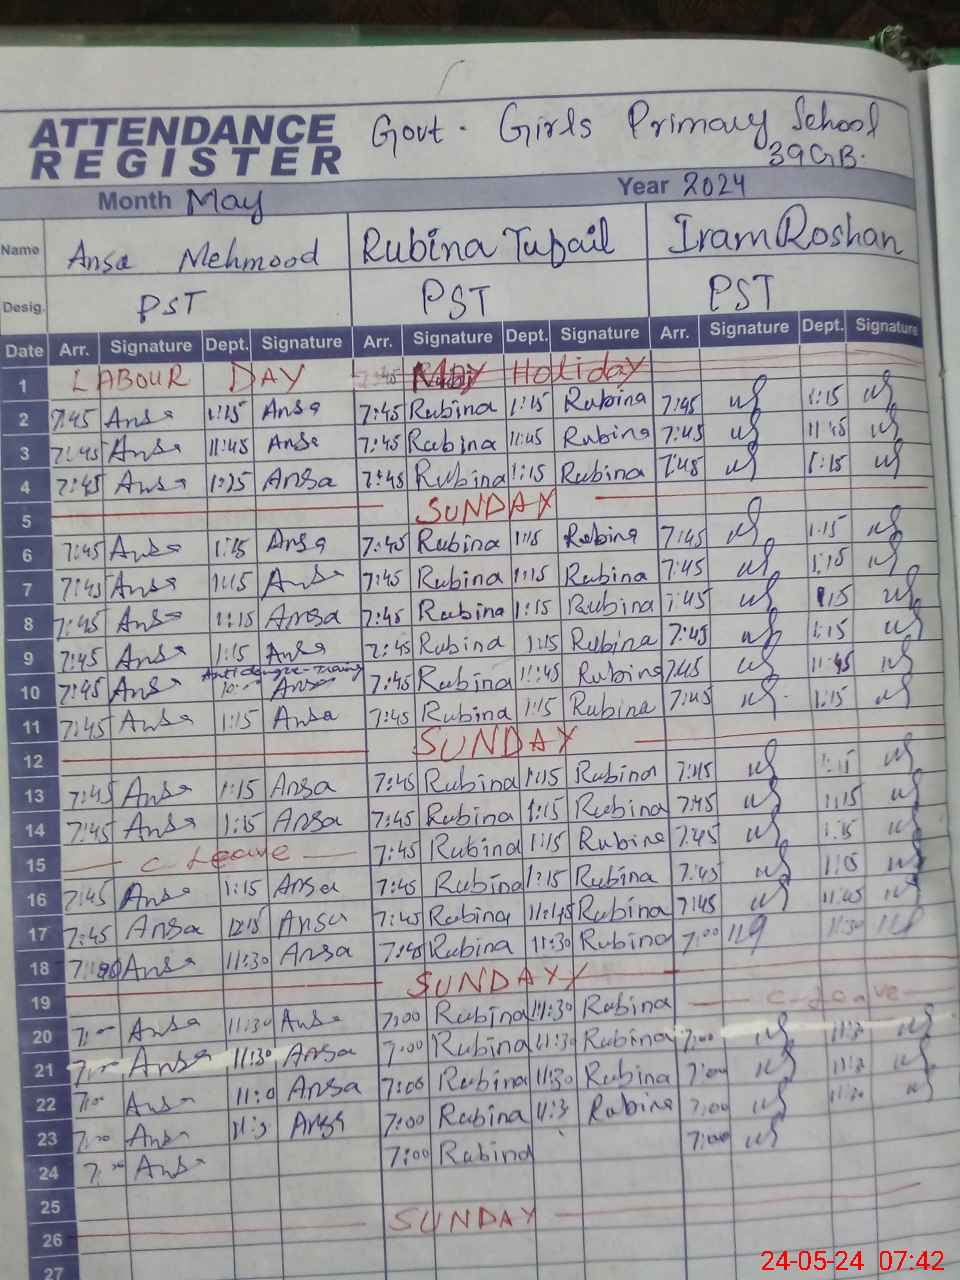 ATTENDANCE REGISTER Govt. Girls Primary School
39 GB.
Month May Year 2024
Name Ansa Mehmood Rubina Tufail Iram Roshan
Desig. PST PST PST
Date Arr. Signature Dept. Signature Arr. Signature Dept. Signature Arr. Signature Dept. Signature
1 LABOUR DAY May Holiday
2 7:45 Ansa 1:15 Ansa 7:45 Rubina 1:15 Rubina 7:45 1:15
3 7:45 Ansa 11:45 Ansa 7:45 Rubina 11:45 Rubina 7:45 11:45
4 7:45 Ansa 1:15 Ansa 7:45 Rubina 1:15 Rubina 7:45 1:15
5 SUNDAY
6 7:45 Ansa 1:15 Ansa 7:45 Rubina 1:15 Rubina 7:45 1:15
7 7:45 Ansa 1:15 Ansa 7:45 Rubina 1:15 Rubina 7:45 1:15
8 7:45 Ansa 1:15 Ansa 7:45 Rubina 1:15 Rubina 7:45 1:15
9 7:45 Ansa 1:15 Ansa 7:45 Rubina 1:15 Rubina 7:45 1:15
10 7:45 Ansa Ansa 7:45 Rubina 11:45 Rubina 7:45 11:45
11 7:45 Ansa 1:15 Ansa 7:45 Rubina 1:15 Rubina 7:45 1:15
12 SUNDAY
13 7:45 Ansa 1:15 Ansa 7:45 Rubina 1:15 Rubina 7:45 1:15
14 7:45 Ansa 1:15 Ansa 7:45 Rubina 1:15 Rubina 7:45 1:15
15 C Leave 7:45 Rubina 1:15 Rubina 7:45 1:15
16 7:45 Ansa 1:15 Ansa 7:45 Rubina 1:15 Rubina 7:45 1:15
17 7:45 Ansa 12:15 Ansa 7:45 Rubina 11:45 Rubina 7:45 11:45
18 Ansa 11:30 Ansa 7:45 Rubina 11:30 Rubina 7:00 11:30
19 SUNDAY
20 7:00 Ansa 11:30 Ansa 7:00 Rubina 11:30 Rubina C-Leave
21 7:00 Ansa 11:30 Ansa 7:00 Rubina 11:30 Rubina 7:00 11:30
22 7:00 Ansa 11:30 Ansa 7:00 Rubina 11:30 Rubina 7:00 11:30
23 7:00 Ansa 11:3 Ansa 7:00 Rubina 11:3 Rubina 7:00 11:30
24 7:00 Ansa 7:00 Rubina 7:00
25
26 SUNDAY
27
24-05-24 07:42